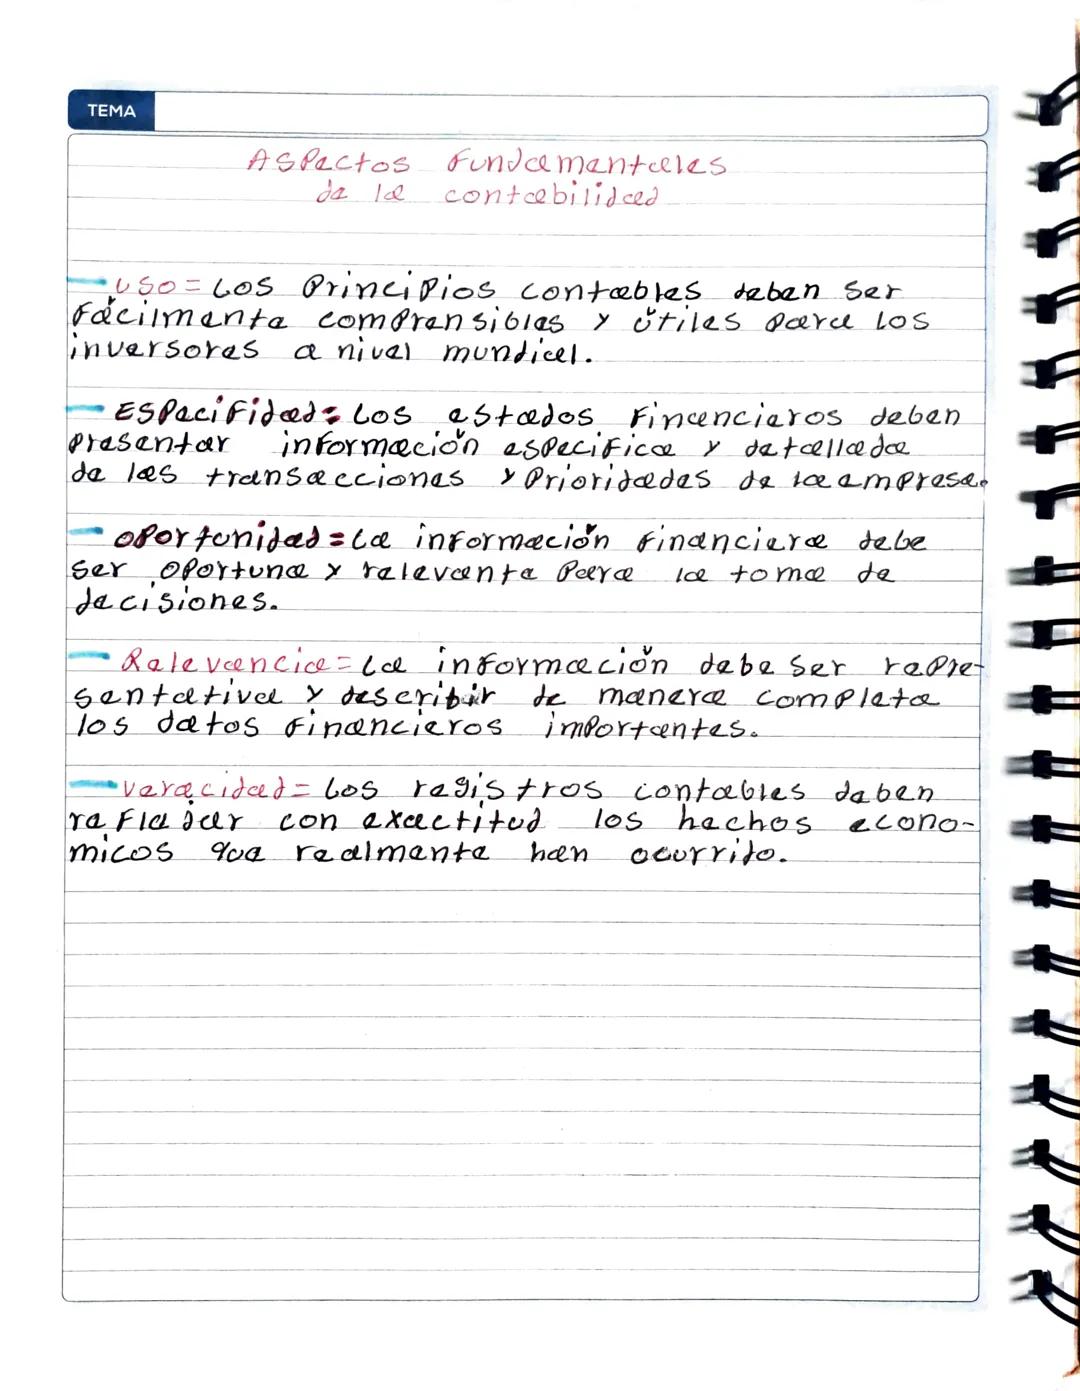 TEMA
Aspectos Fundamentales
de la contabilidad
- Uso = Los Principios contables deben ser
Fácilmente comprensibles y útiles para los
inversores a nivel mundial.
- Especifidad = Los estados Financieros deben
Presentar información especifica y detallada
de las transacciones y Prioridades de la empresa.
- Oportunidad = La información Financiera debe
ser oportuna y relevante Para la toma de
decisiones.
- Relevancia = La información debe ser repre-
sentativa y describir de manera completa
los datos Financieros importantes.
- Veracidad = Los registros contables deben
reflejar con exactitud los hechos econo-
micos que realmente han ocurrido.